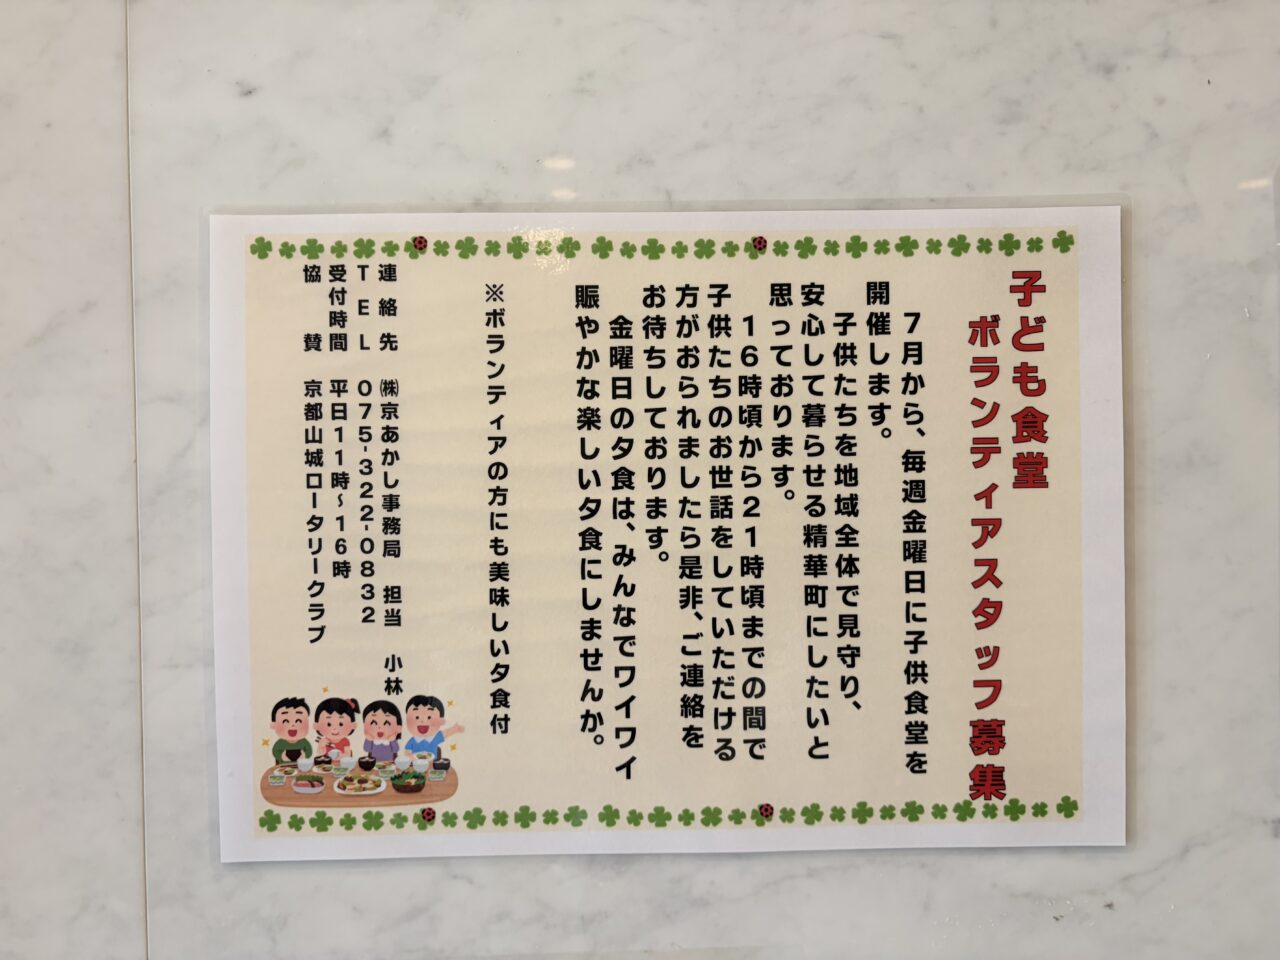 子ども食堂
ボランティアスタッフ募集
7月から、毎週金曜日に子供食堂を
開催します。
子供たちを地域全体で見守り、
安心して暮らせる精華町にしたいと
思っております。
16時頃から21時頃までの間で
子供たちのお世話をしていただける
方がおられましたら是非、ご連絡を
お待ちしております。
金曜日の夕食は、みんなでワイワイ
賑やかな楽しい夕食にしませんか。
※ボランティアの方にも美味しい夕食付
連絡先 ㈱京あかし事務局 担当 小林
TEL 075-322-0832
受付時間 平日11時~16時
協賛 京都山城ロータリークラブ